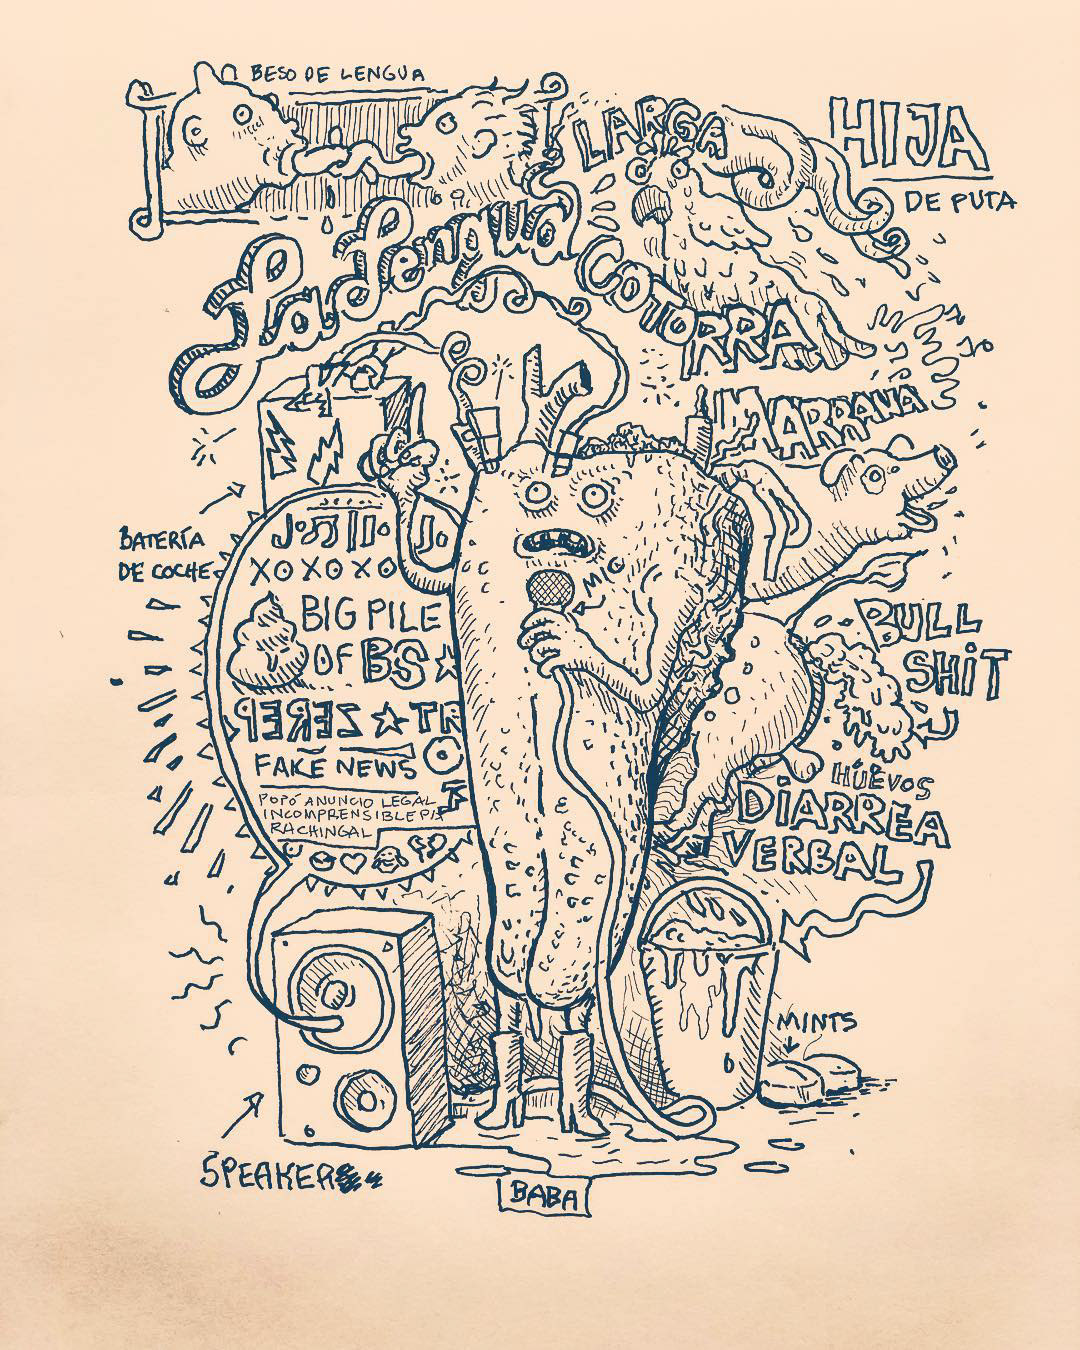 BESO DE LENGUA
La Lengua
LARGA
HIJA
DE PUTA
COTORRA
MARRANA
BATERÍA
DE COCHE
XOXOXO
BIG PILE
OF BS
FAKE NEWS
POPÓ ANUNCIO LEGAL
INCOMPRENSIBLE
RACHINGAL
MIC
BULL
SHiT
HÜEVOS
DiARREA
VERBAL
MINTS
SPEAKER
BABA